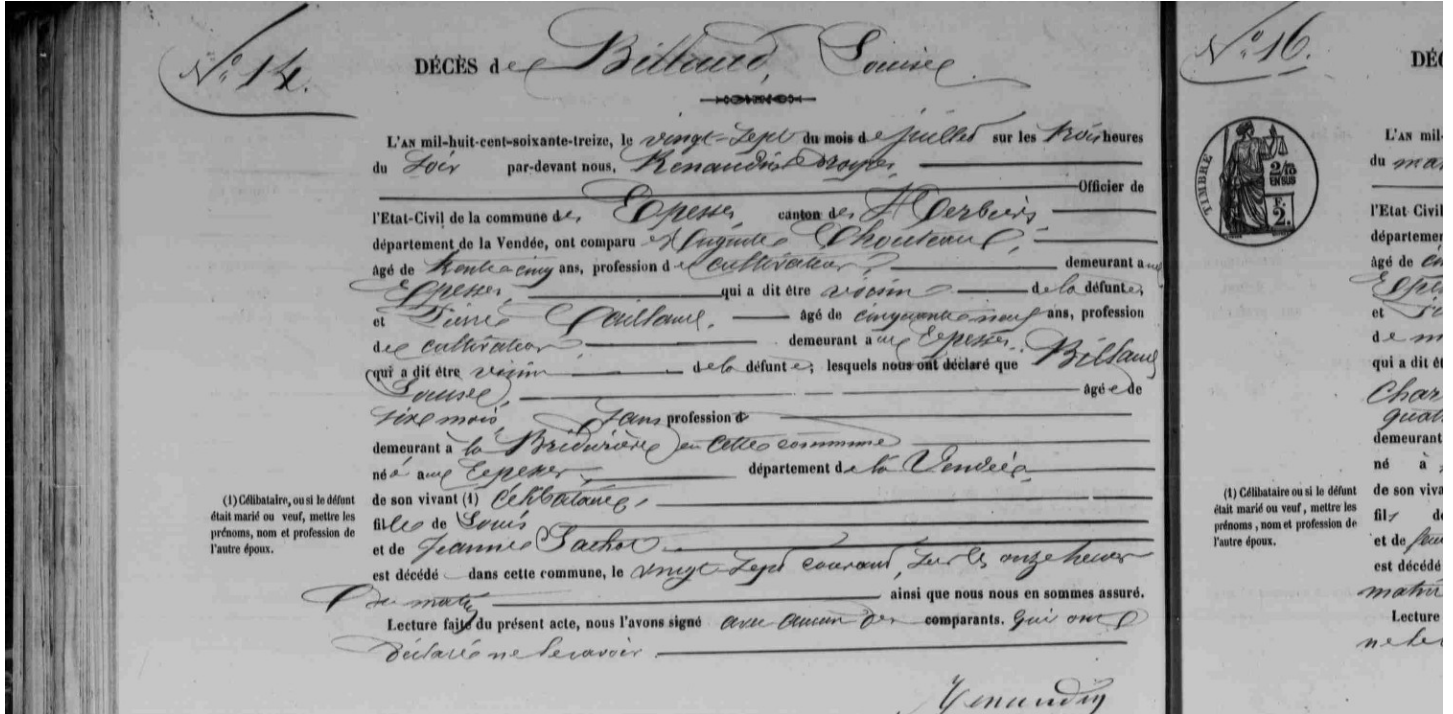 N° 14.
DÉCÈS de Billaud, Louise
L'AN mil-huit-cent-soixante-treize, le vingt-sept du mois de juillet sur les trois heures
du soir par-devant nous, Renaudin
Officier de
l'Etat-Civil de la commune des Epesses, canton des Herbiers,
département de la Vendée, ont comparu Auguste Chouteau,
âgé de trente cinq ans, profession de cultivateur, demeurant aux
Epesses, qui a dit être voisin de la défunte,
et Pierre âgé de cinquante neuf ans, profession
de cultivateur demeurant aux Epesses.
qui a dit être voisin de la défunte, lesquels nous ont déclaré que Billaud
Louise, âgée de
six mois, sans profession d
demeurant à la en cette commune
née aux Epesses, département de la Vendée,
de son vivant (1) Célibataire,
fille de Louis
et de Jeanne
est décédé dans cette commune, le vingt-sept courant, sur les onze heures
du matin ainsi que nous nous en sommes assuré.
Lecture faite du présent acte, nous l'avons signé avec aucun des comparants. qui ont
déclaré ne le savoir.
Renaudin
(1) Célibataire, ou si le défunt
était marié ou veuf, mettre les
prénoms, nom et profession de
l'autre époux.
N° 16.
DÉC
TIMBRE
2/10
EN SUS
F.
2.
L'AN mil-
du
l'Etat-Civil
départemen
âgé de
et
de m
qui a dit êt
Char
quat
demeurant
né à
de son viva
fils de
et de feu
est décédé
matin
Lecture
ne le
(1) Célibataire ou si le défunt
était marié ou veuf, mettre les
prénoms, nom et profession de
l'autre époux.